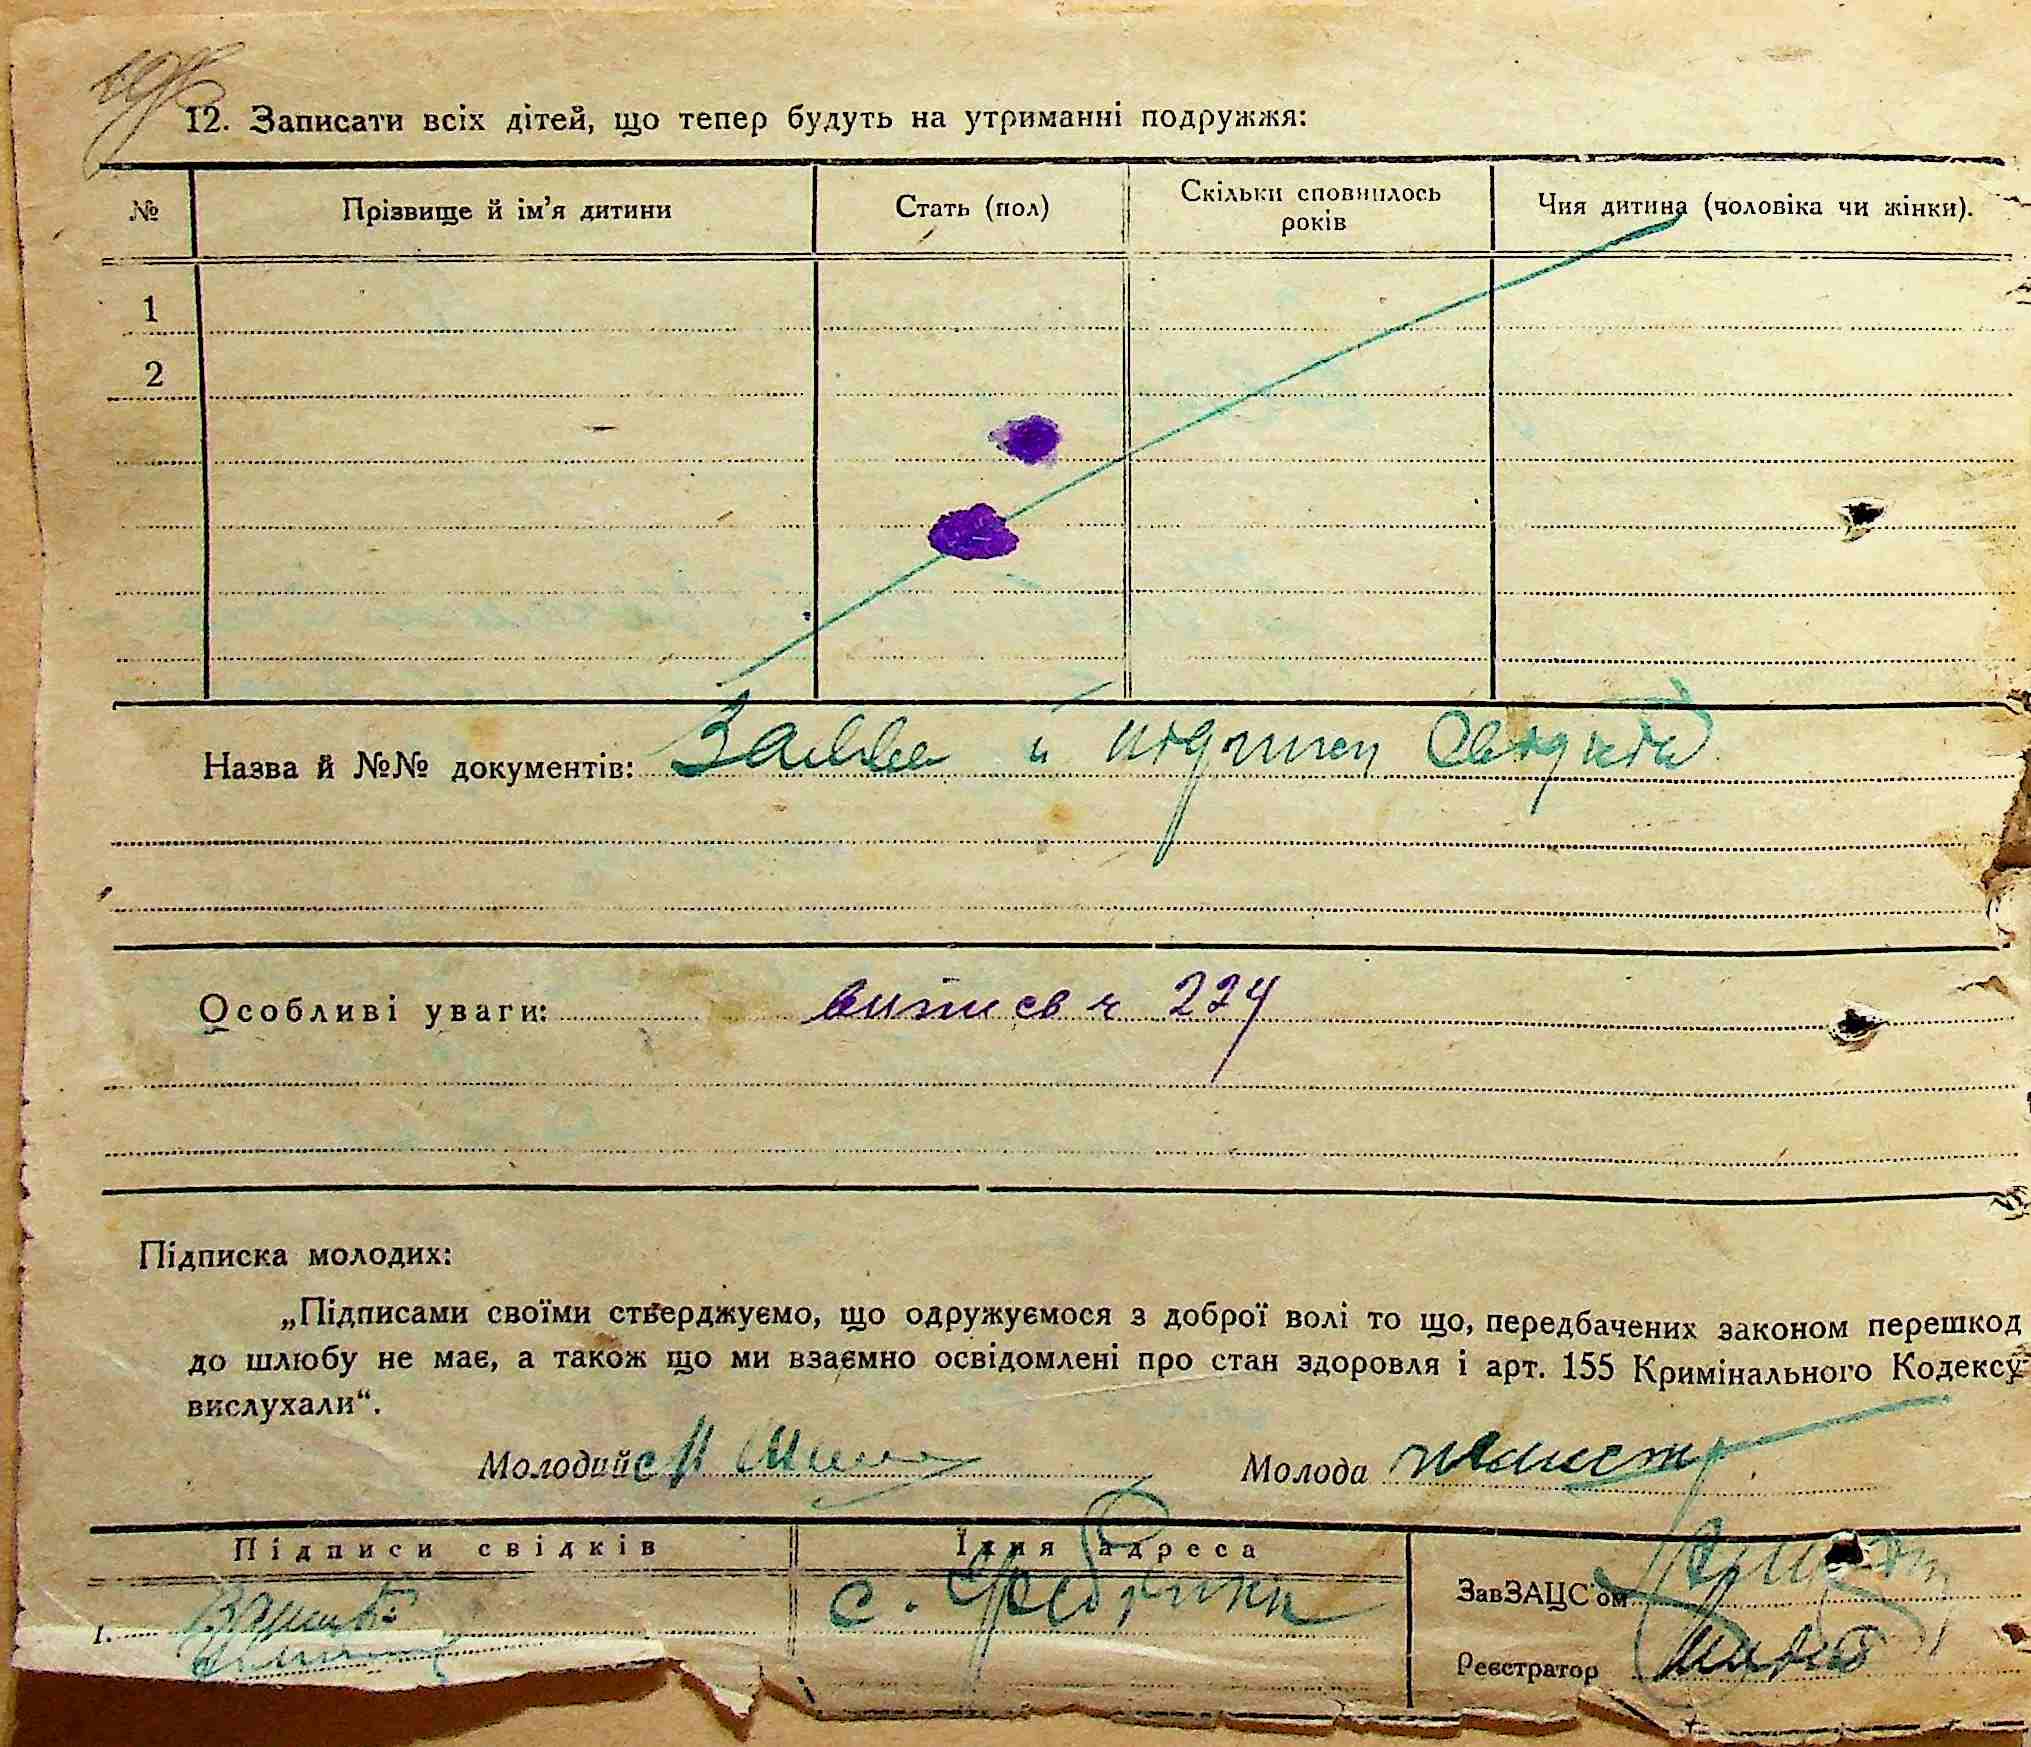 12. Записати всіх дітей, що тепер будуть на утриманні подружжя:
№ Прізвище й ім’я дитини Стать (пол) Скільки сповнилось років Чия дитина (чоловіка чи жінки).
1
2
Назва й №№ документів: й
Особливі уваги: 274
Підписка молодих:
„Підписами своїми стверджуємо, що одружуємося з доброї волі то що, передбачених законом перешкод
до шлюбу не має, а також що ми взаємно освідомлені про стан здоровля і арт. 155 Кримінального Кодексу
вислухали“.
Молодий Молода
Підписи свідків Їхня адреса
ЗавЗАЦС’ом
1. с.
Реєстратор